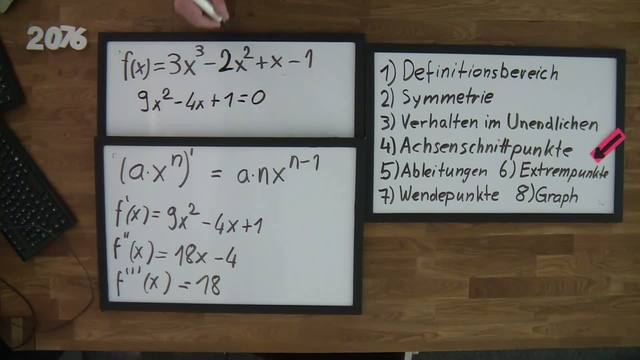 2076
f(x)=3x³-2x²+x-1
9x²-4x+1=0
(a·xⁿ)' = a·nxⁿ⁻¹
f'(x)=9x²-4x+1
f''(x)=18x-4
f'''(x)=18
1) Definitionsbereich
2) Symmetrie
3) Verhalten im Unendlichen
4) Achsenschnittpunkte
5) Ableitungen 6) Extrempunkte
7) Wendepunkte 8) Graph